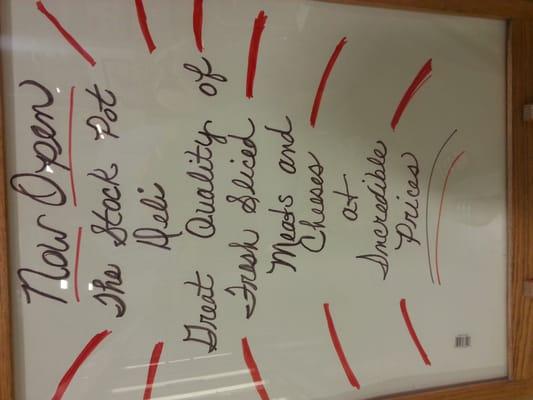 Now Open
The Stock Pot
Deli
Great Quality of
Fresh Sliced
Meats and
Cheeses
at
Incredible
Prices